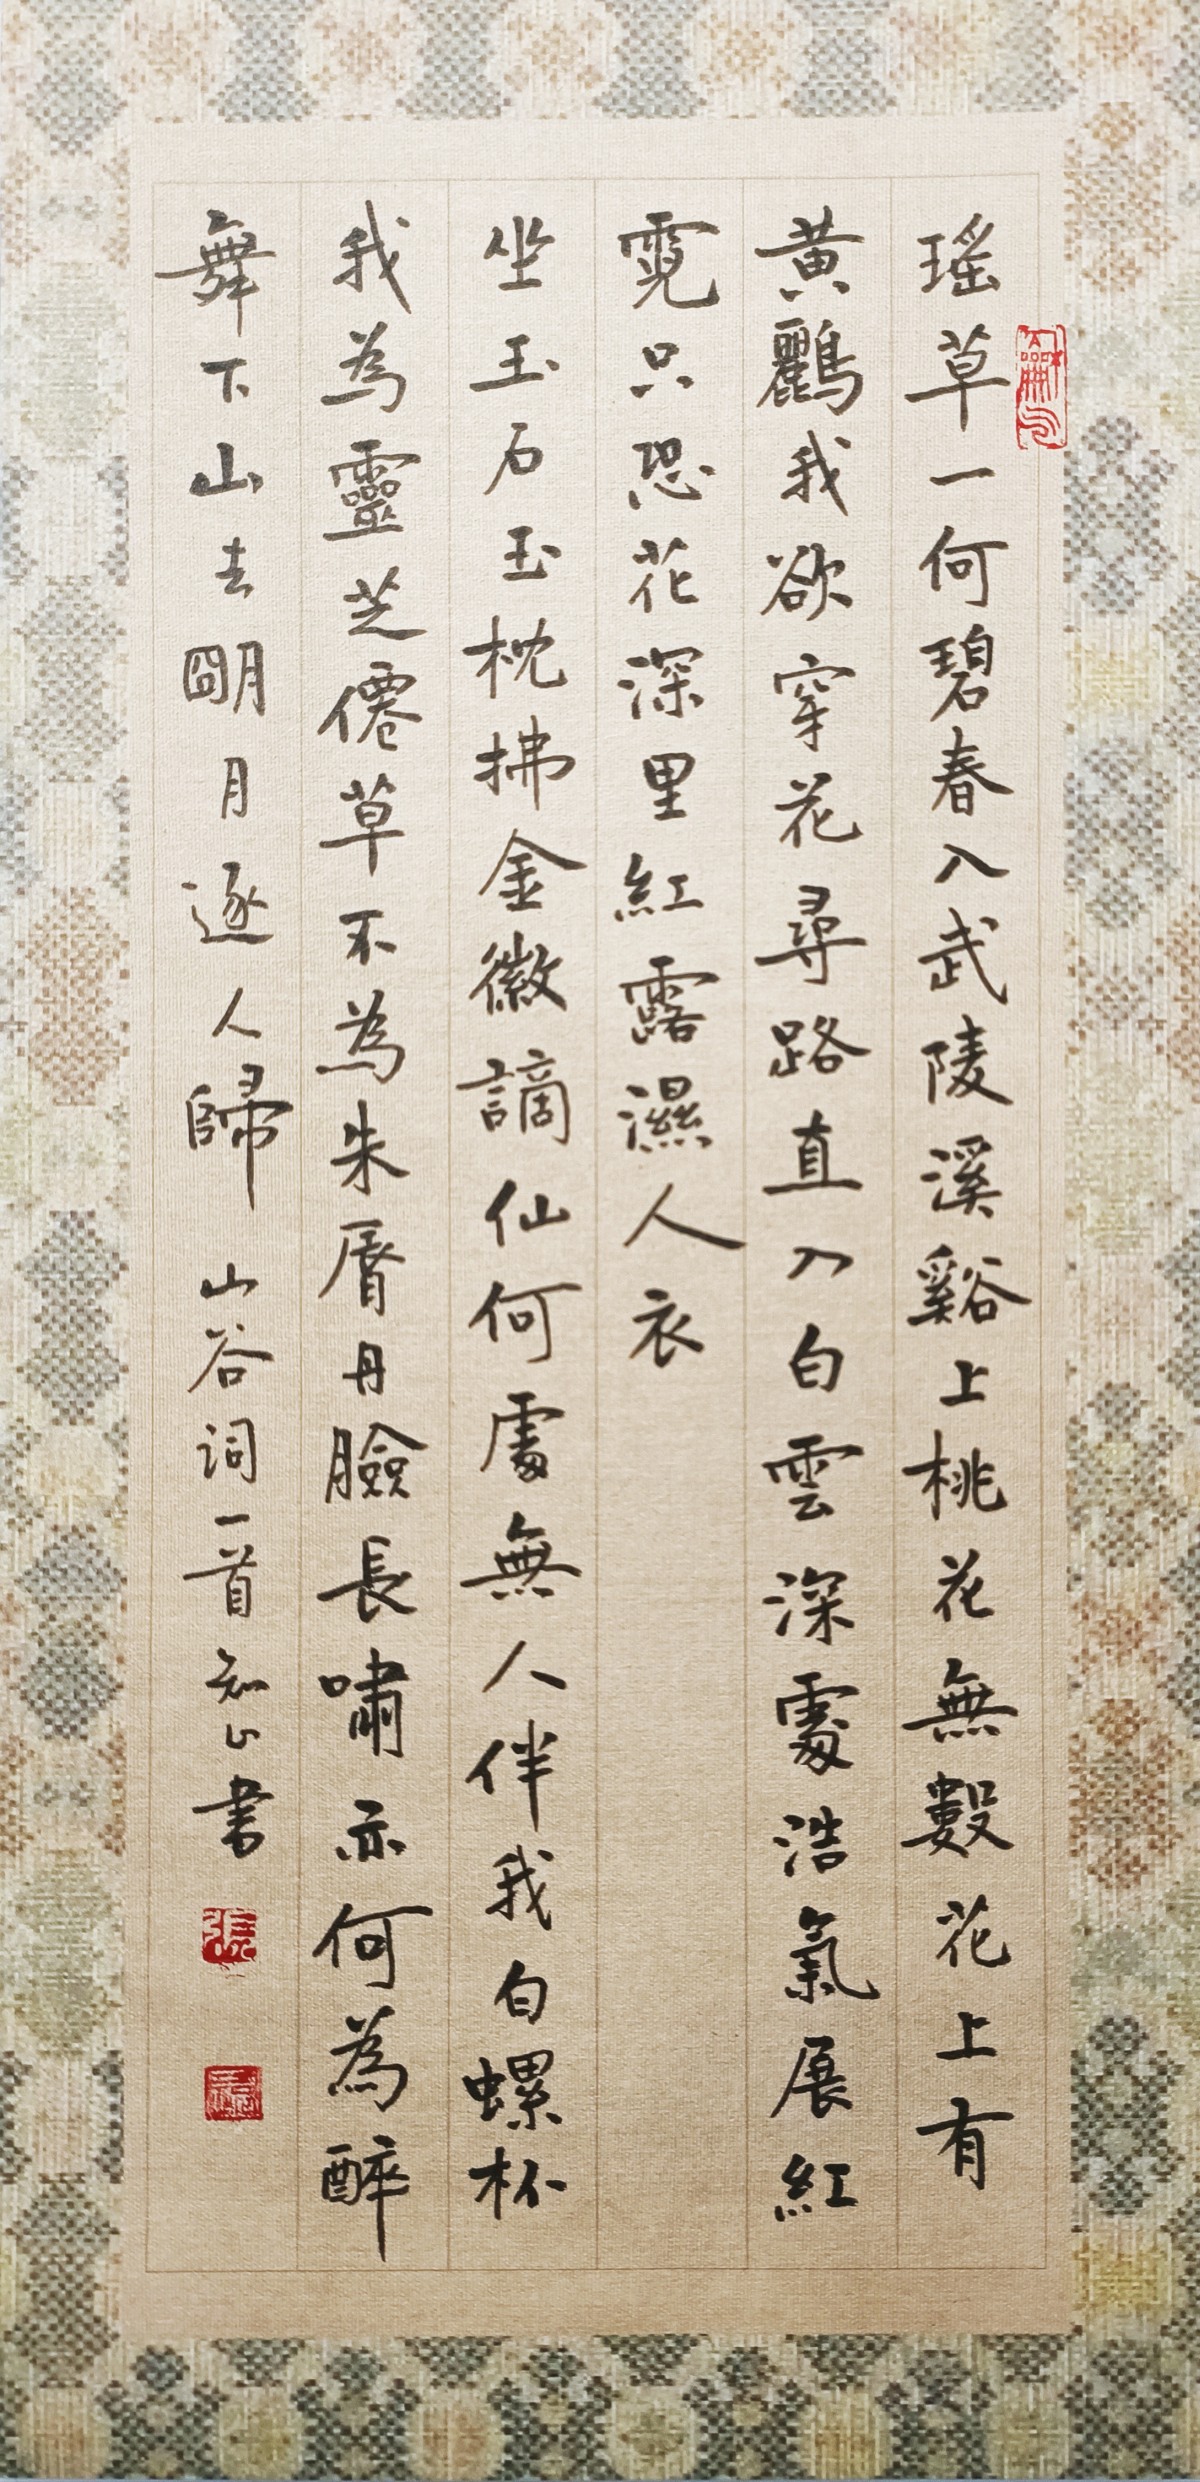 瑤草一何碧春入武陵溪谿上桃花無數花上有
黃鸝我欲穿花尋路直入白雲深處浩氣展紅
霓只恐花深里紅露濕人衣
坐玉石玉枕拂金徽謫仙何處無人伴我白螺杯
我為靈芝僊草不為朱脣丹臉長嘯亦何為醉
舞下山去朙月逐人歸 山谷詞一首 書